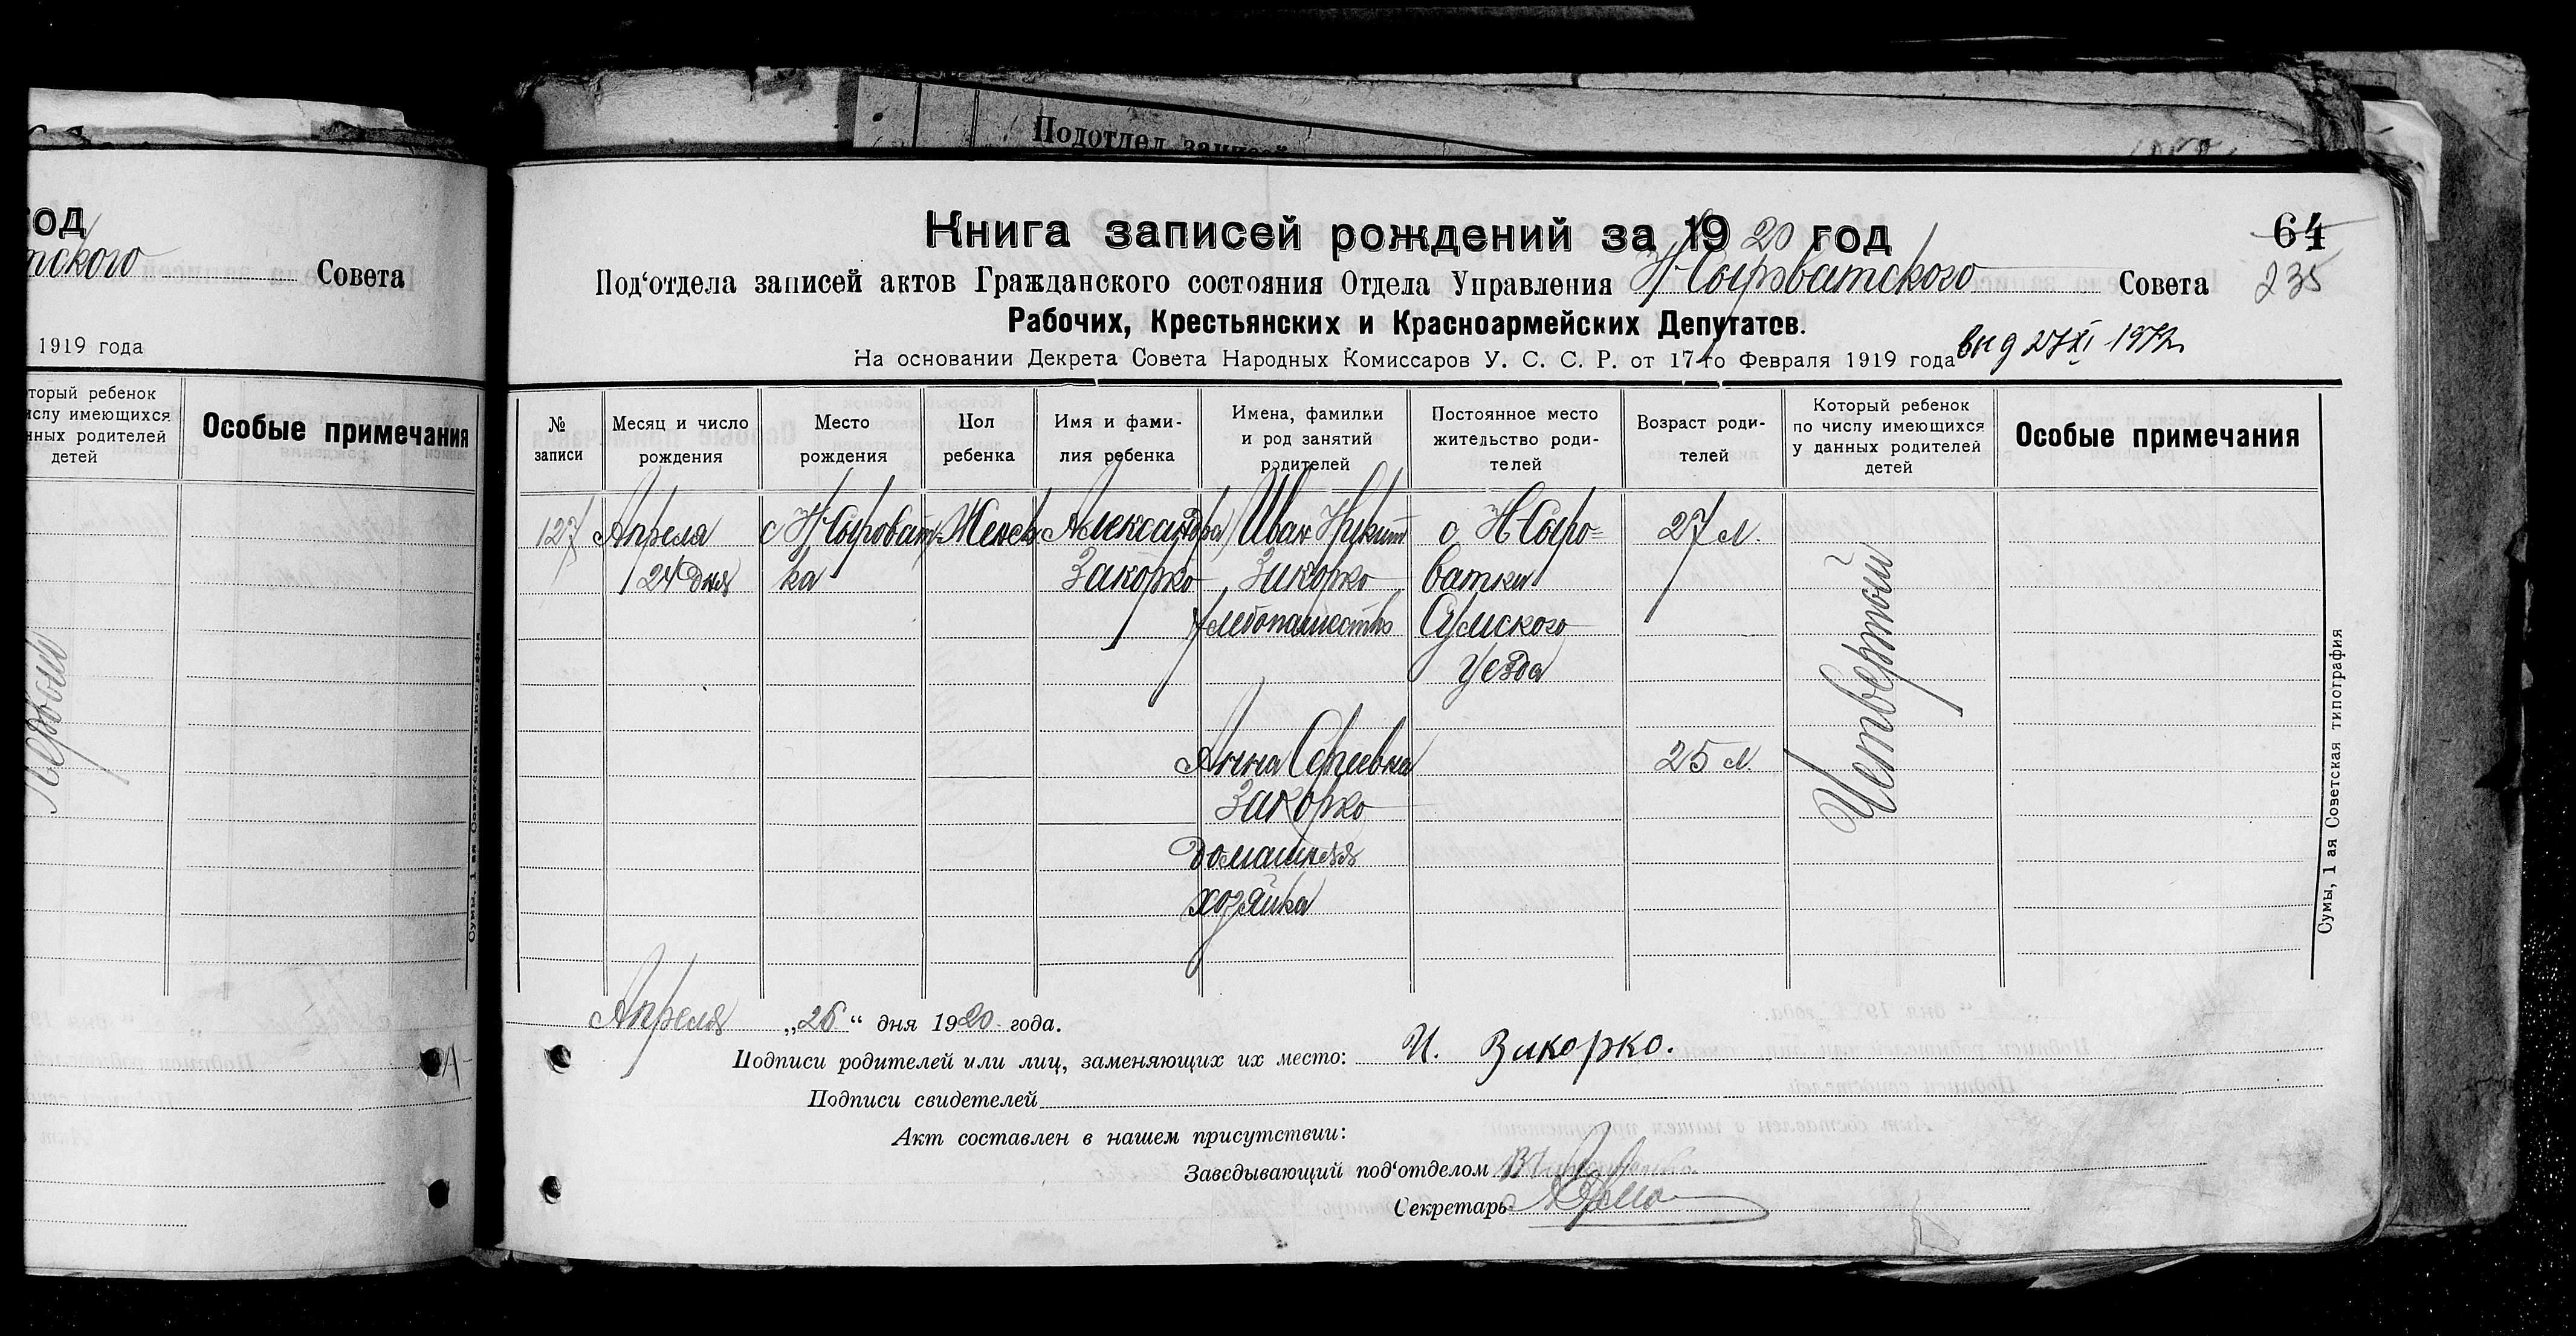 од
тского Совета
1919 года
оторый ребенок
числу имеющихся
нных родителей
детей
Особые примечания
Первый
Сумы, 1 ая Советская типография
Подотдел записей
64
235
Книга записей рождений за 1920 год
Под‘отдела записей актов Гражданского состояния Отдела Управления Н Сыроватского Совета
Рабочих, Крестьянских и Красноармейских Депутатов.
На основании Декрета Совета Народных Комиссаров У. С. С. Р. от 17-го Февраля 1919 года
№ записи
Месяц и число рождения
Место рождения
Пол ребенка
Имя и фами-
лия ребенка
Имена, фамилии
и род занятий
родителей
Постоянное место
жительство роди-
телей
Возраст роди-
телей
Который ребенок
по числу имеющихся
у данных родителей
детей
Особые примечания
127 Апреля с Н Сыроват Женск Александра Иван Никит с Н Сыро= 27 л.
24 дня ка Закорко Закорко ватки
хлебопашество Сумского
уезда
Четвертый
Анна Сергеевна 25 л.
Закорко
домашняя
хозяйка
Апреля „26“ дня 1920 года.
Подписи родителей или лиц, заменяющих их место: И. Закорко.
Подписи свидетелей
Акт составлен в нашем присутствии:
Заведывающий под‘отделом
Секретарь
Сумы, 1 ая Советская типография